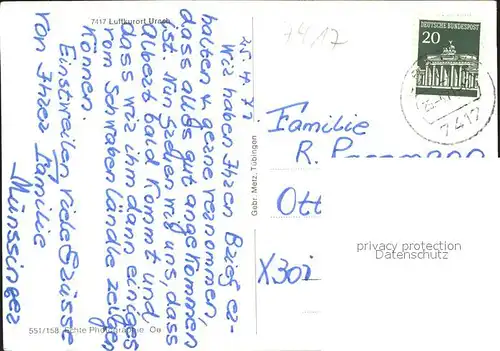 7417 Luftkurort Urach
25.4.71
Wir haben Ihren Brief er-
haben & gerne vernommen,
dass alles gut angekommen
ist. Nun freuen wir uns, dass
Albert bald kommt und
dass wir ihm dann einiges
vom Schwabenländle zeigen
können.
Einstweilen viele Grüsse
von Ihrer Familie
Münssinger
551/158 Echte Photographie Oe
Gebr. Metz, Tübingen
7417
DEUTSCHE BUNDESPOST
20
7417
Familie
R.
Ott
X301
privacy protection
Datenschutz